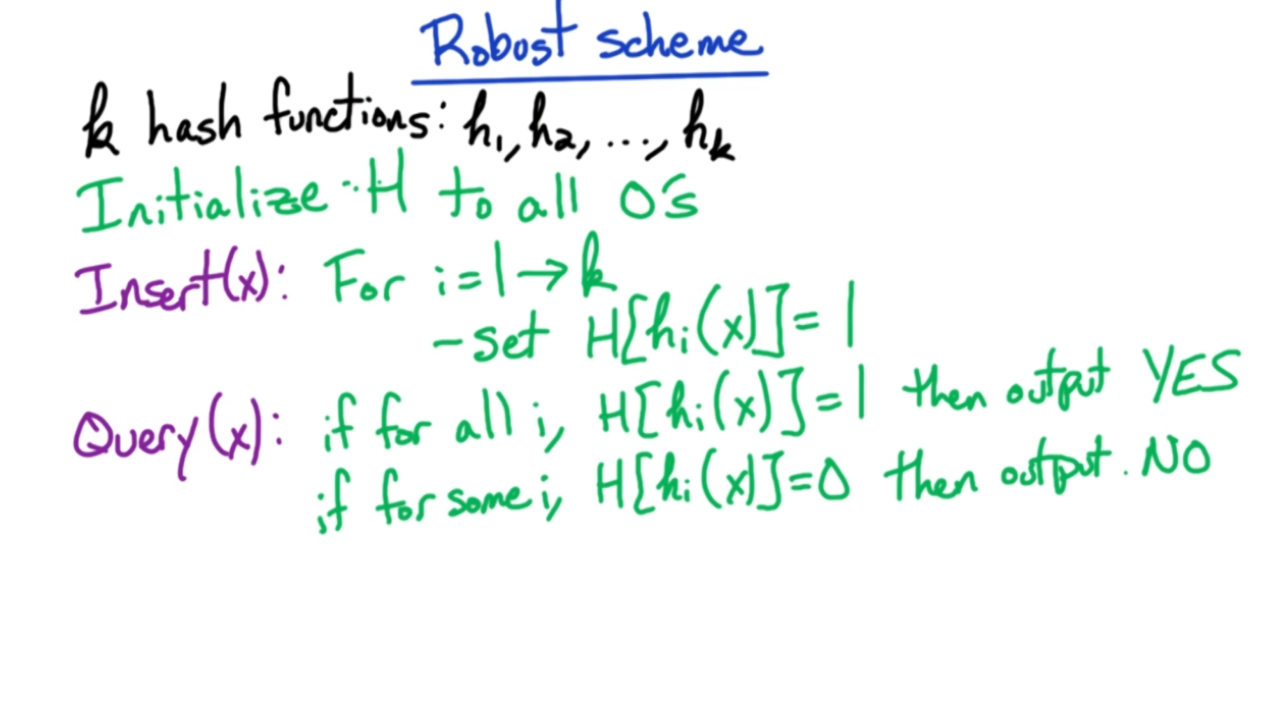 Robust scheme
k hash functions: h₁, h₂, ..., hₖ
Initialize: H to all 0's
Insert(x): For i=1→k
- set H[hᵢ(x)]=1
Query(x): if for all i, H[hᵢ(x)]=1 then output YES
if for some i, H[hᵢ(x)]=0 then output. NO